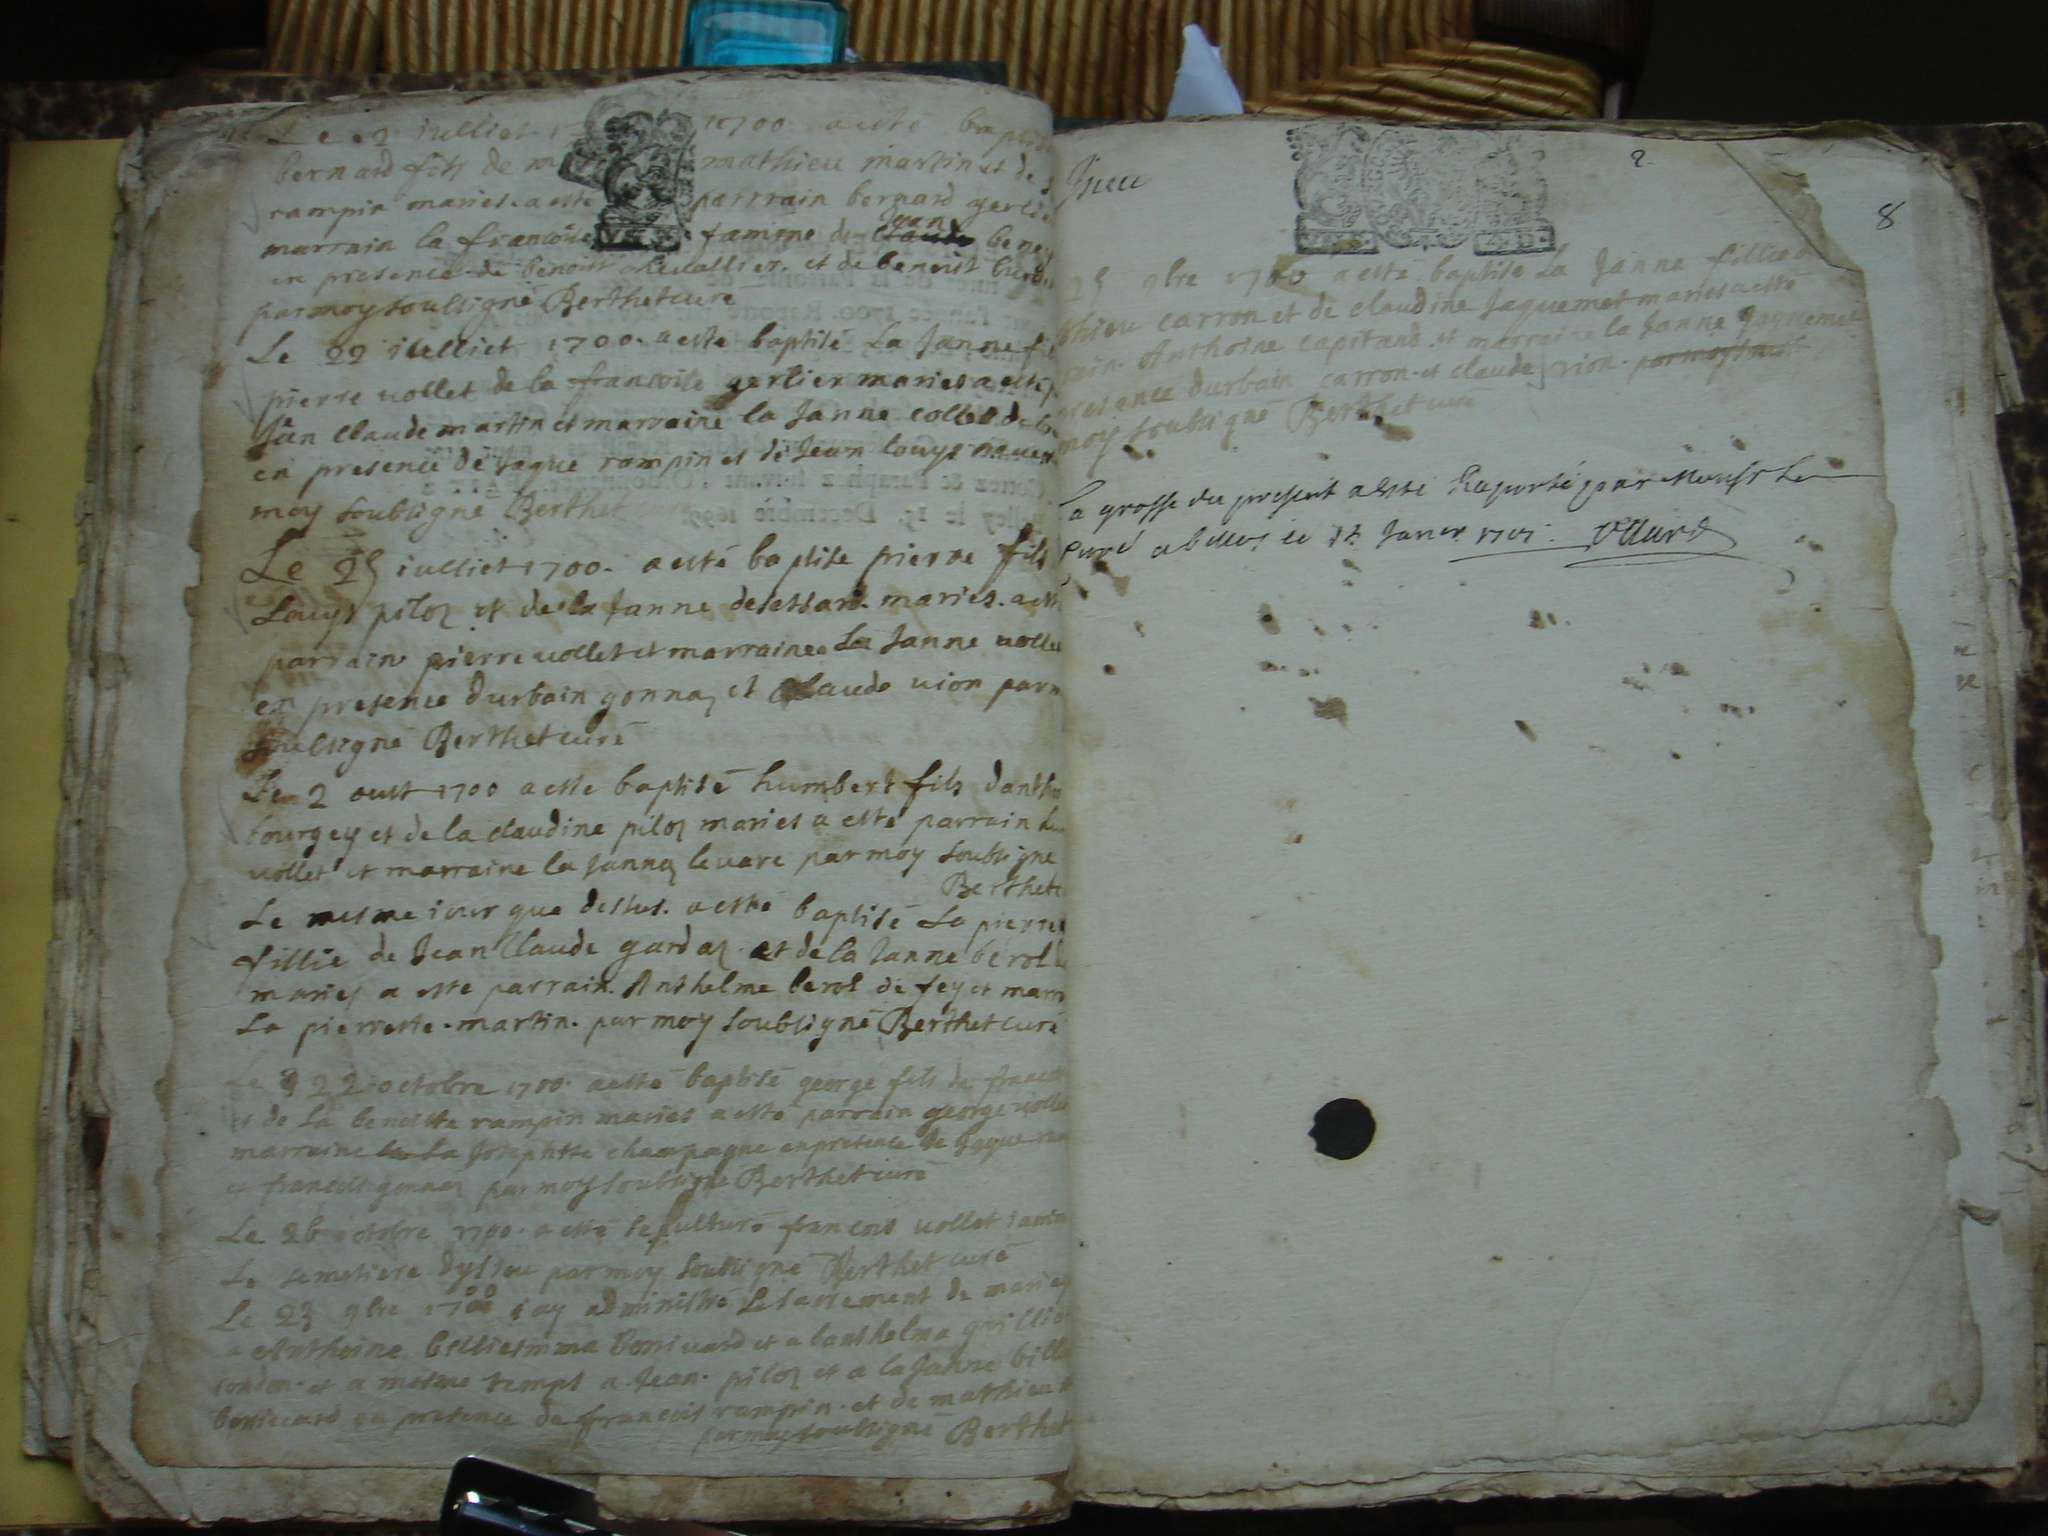 Le 2 iulliet 1700 a este bapt
bernard fils de mathieu martin et de
rampin maries a este parrain bernard gerli
marraine la francoise famme de Jean bene
en presence de benoist chevallier et de benoist
par moy soubsigné Berthet curé
Le 22 iulliet 1700 a este baptisé La Janne
pierre vollet de la francoise gerlier maries a esté
Jean Claude martin et marraine la Janne collet de
en presence de Jaque rampin et de Jean louys
moy soubsigné Berthet
Le 25 iulliet 1700 a esté baptise pierre fils
Louys piloz et de la Janne desessard maries a est
parrain pierre vollet et marraine La Janne volle
en presence d'urbain gonnaz et Claude vion par m
soubsigné Berthet curé
Le 2 oust 1700 a este baptisé humbert fils d'antho
bourgey et de la claudine piloz maries a esté parrain hu
vollet et marraine la Janne levare par moy soubsigne
Berthet c
Le mesme iour que dessus a esté baptisé La pierre
fillie de Jean Claude gardaz et de la Janne berol
maries a este parrain Anthelme berol de fey et marr
La pierrette martin par moy soubsigné Berthet curé
Le 22 octobre 1700 a esté baptisé george fils de francoi
et de La benoitte rampin maries a esté parrain george volle
marraine La Josephtte champagne en presence de Jaque ram
et francois gonnaz par moy soubsigné Berthet curé
Le 26 octobre 1700 a esté sepulturé francois vollet dans
Le semetiere dysieu par moy soubsigné Berthet curé
Le 23 9bre 1700 i ay administré Le sacrement de mariag
a Anthoine bonivard et a lanthelma
et a mesme temps a Jean piloz et a la Janne bill
bonivard en presence de francois rampin et de mathieu
par moy soubsigné Berthet
2
8
Jsieu
25 9bre 1700 a esté baptise La Janne fillie d
thieu carron et de claudine Jaquemet maries a esté
rain Anthoine capitand et marraine la Janne Jaquemet
presence d'urbain carron et claude vion par moy soubs
moy soubsigné Berthet curé
La grosse du present a esté Raporté par Monsr Le
Curé a belley le 12 Janer 1701